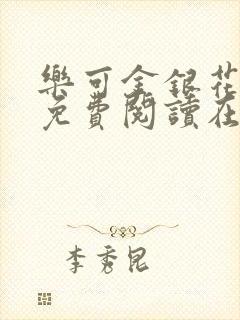 樂可金銀花
免費閱讀在
李秀昆